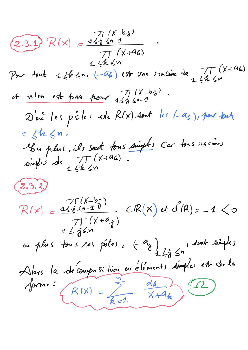 2.3.1) R(X) = ∏_{1≤j≤n-1} (X-b_j) / ∏_{1≤k≤n} (X+a_k).
Pour tout 1≤k≤n, (-a_k) est une racine de ∏_{1≤k≤n} (X+a_k)
et n'en est pas pour ∏_{1≤j≤n-1} (X-b_j).
D'où les pôles de R(X) sont les (-a_k), pour tout
1≤k≤n.
De plus, ils sont tous simples car tous racines
simples de ∏_{1≤k≤n} (X+a_k).
2.3.2)
R(X) = ∏_{1≤j≤n-1} (X-b_j) / ∏_{1≤j≤n} (X+a_j) ∈ ℝ(X) et d°(R) = -1 < 0
en plus tous ses pôles, (-a_j)_{1≤j≤n}, sont simples
Alors la décomposition en éléments simples est de la
forme: R(X) = ∑_{k=1}^{n} α_k / (X+a_k)